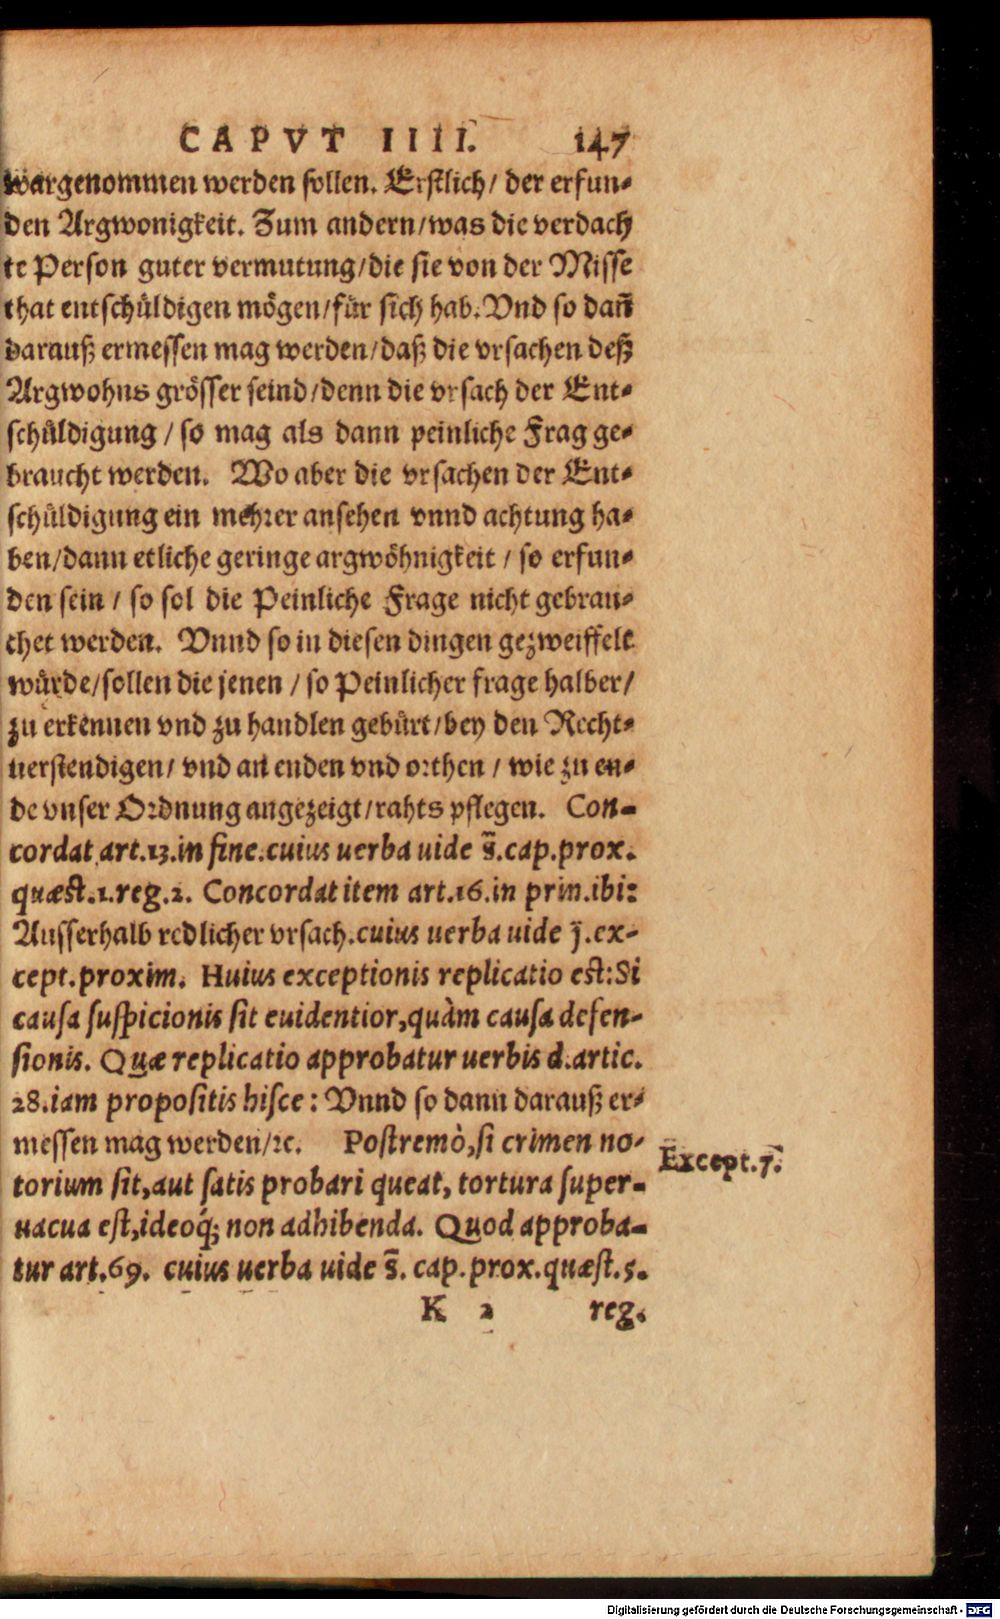 CAPVT IIII. 147
wargenommen werden sollen. Erstlich/ der erfun-
den Argwonigkeit. Zum andern/was die verdach
te Person guter vermutung/die sie von der Misse
that entschüldigen mögen/für sich hab. Vnd so dañ
darauß ermessen mag werden/daß die vrsachen deß
Argwohns grösser seind/denn die vrsach der Ent-
schüldigung / so mag als dann peinliche Frag ge-
braucht werden. Wo aber die vrsachen der Ent-
schüldigung ein mehrer ansehen vnnd achtung ha-
ben/dann etliche geringe argwöhnigkeit / so erfun-
den sein / so sol die Peinliche Frage nicht gebrau-
chet werden. Vnnd so in diesen dingen gezweiffelt
würde/sollen die jenen / so Peinlicher frage halber/
zu erkennen vnd zu handlen gebürt/bey den Recht-
uerstendigen/ vnd an enden vnd orthen / wie zu en-
de vnser Ordnung angezeigt/rahts pflegen. Con-
cordat art.13.in fine.cuius uerba uide s̃.cap.prox.
quæst.1.reg.2. Concordat item art.16.in prin.ibi:
Ausserhalb redlicher vrsach.cuius uerba uide j̃.ex-
cept.proxim. Huius exceptionis replicatio est:Si
causa suspicionis sit euidentior,quàm causa defen-
sionis. Quæ replicatio approbatur uerbis d.artic.
28.iam propositis hisce: Vnnd so dann darauß er-
messen mag werden/ꝛc. Postremò,si crimen no-
torium sit,aut satis probari queat, tortura super-
uacua est,ideoq́; non adhibenda. Quod approba-
tur art.69. cuius uerba uide s̃. cap.prox.quæst.5.
Except.7.
K 2 reg.
Digitalisierung gefördert durch die Deutsche Forschungsgemeinschaft - DFG